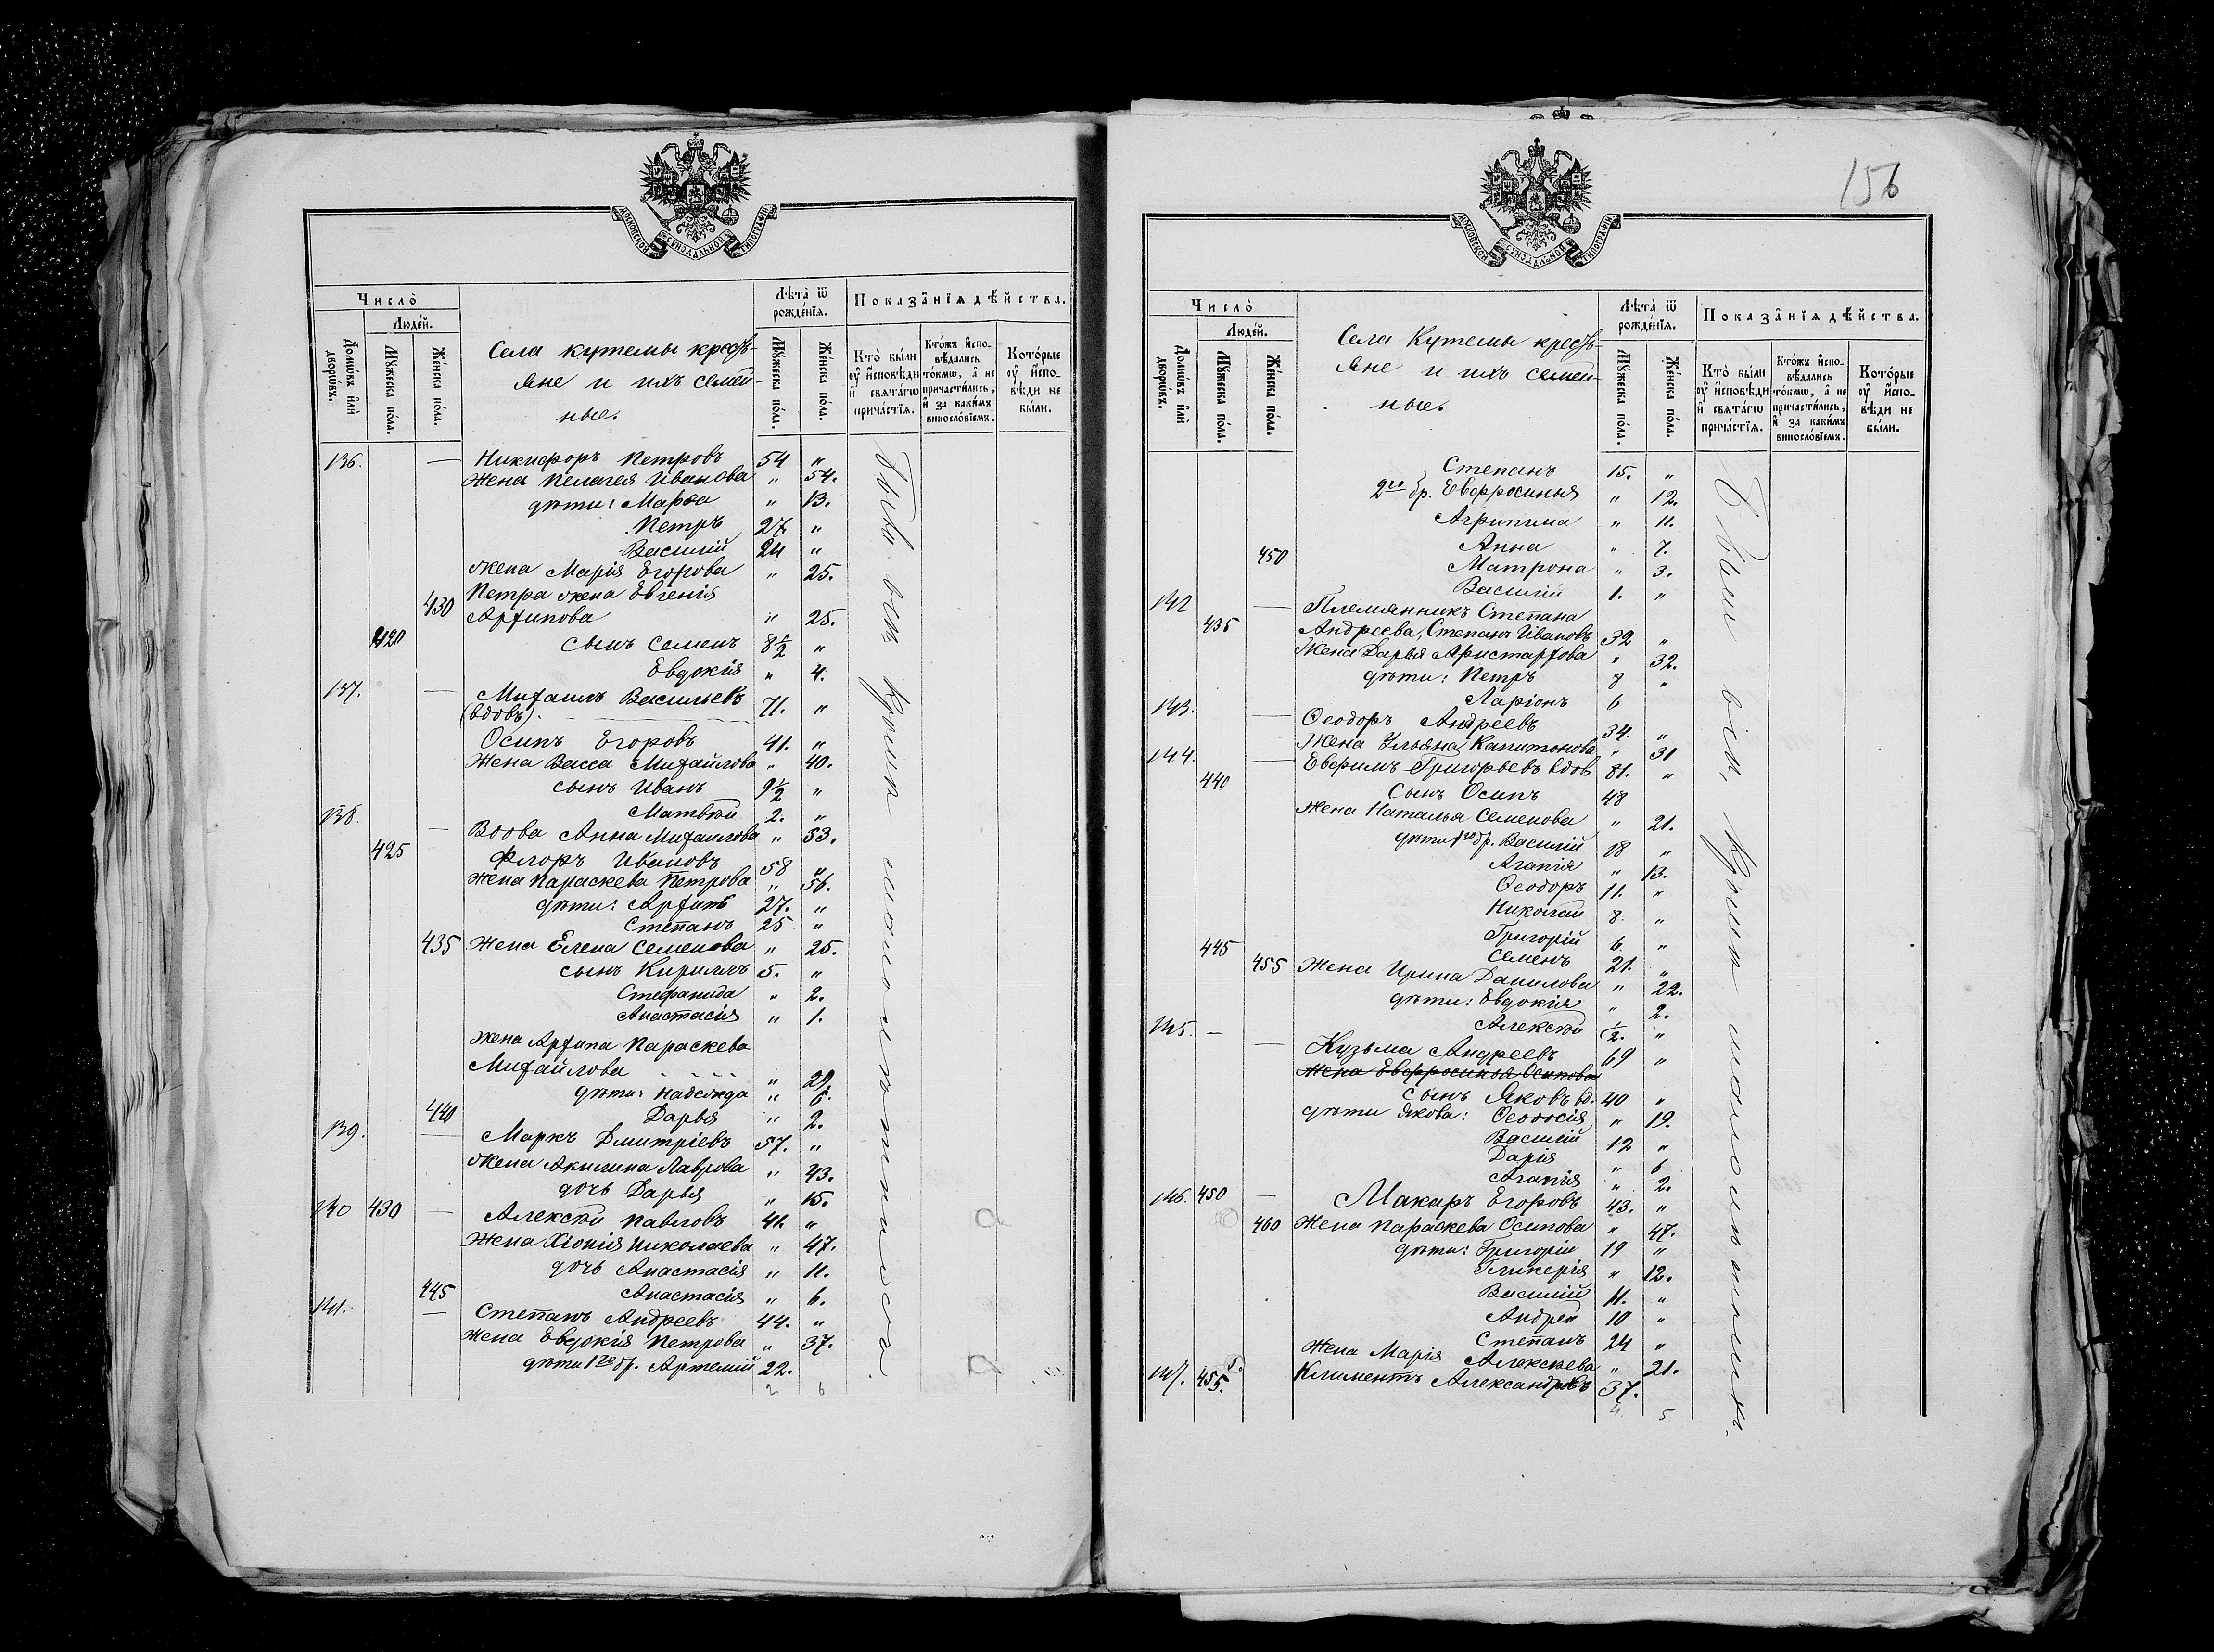 МОСКОВСКОЙ СѴНОДАЛЬНОЙ ТИПОГРАФІИ
Число̀
Людéй.
Домѡ́въ и҆лѝ дворѡ́въ.
Мꙋ́жеска по́ла.
Же́нска по́ла.
Села Кутемы кресть-
яне и ихъ семей-
ные.
Лѣта̀ ѿ рожде́нїѧ.
Мꙋ́жеска по́ла.
Же́нска по́ла.
Показа̑нїѧ дѣ́йства.
Кто̀ бы́ли оу҆ и҆сповѣ́ди и҆ свѧта́гѡ прича́стїѧ.
Кто́жъ и҆спо-вѣ́дались то́кмѡ, а҆ не причасти́лись, и҆ за каки́мъ винословїемъ.
Кото́рые оу҆ и҆спо-вѣ́ди не бы́ли.
136. — Никифоръ Петровъ 54 "
Жена Пелагея Иванова " 54.
дѣти: Марѳа " 13.
Петръ 27. "
Василій 24 "
Жена Марія Егорова " 25.
Петра жена Евгенія
430 Архипова " 25.
420 сынъ Семенъ 8½ "
Евдокія " 4.
137. — Михаилъ Васильевъ
(вдовъ). 71. "
Осипъ Егоровъ 41. "
Жена Васса Михайлова " 40.
сынъ Иванъ 9½ "
Матвѣй 2. "
138. — Вдова Анна Михаилова " 53.
425 Флоръ Ивановъ 58 "
Жена Параскева Петрова " 56.
дѣти: Архипъ 27. "
Степанъ 25 "
435 Жена Елена Семенова " 25.
сынъ Кириллъ 5. "
Стефанида " 2.
Анастасія " 1.
Жена Архипа Параскева
Михайлова " 29.
дѣти: Надежда " 6.
440 Дарья " 2.
139. — Маркъ Дмитріевъ 57. "
Жена Акилина Лаврова " 43.
дочь Дарья " 15.
140 430 — Алексѣй Павловъ 41. "
Жена Хіонія Николаева " 47.
дочь Анастасія " 11.
445 Анастасія " 6.
141. — Степанъ Андреевъ 44. "
Жена Евдокія Петрова " 37.
дѣти 1го бр. Артемій 22.
2 6
156
МОСКОВСКОЙ СѴНОДАЛЬНОЙ ТИПОГРАФІИ
Число̀
Людéй.
Домѡ́въ и҆лѝ дворѡ́въ.
Мꙋ́жеска по́ла.
Же́нска по́ла.
Села Кутемы кресть-
яне и ихъ семей-
ные.
Лѣта̀ ѿ рожде́нїѧ.
Мꙋ́жеска по́ла.
Же́нска по́ла.
Показа̑нїѧ дѣ́йства.
Кто̀ бы́ли оу҆ и҆сповѣ́ди и҆ свѧта́гѡ прича́стїѧ.
Кто́жъ и҆спо-вѣ́дались то́кмѡ, а҆ не причасти́лись, и҆ за каки́мъ винословїемъ.
Кото́рые оу҆ и҆спо-вѣ́ди не бы́ли.
Степанъ 15. "
2го бр. Евфросинья " 12.
Агрипина " 11.
450 Анна " 7.
Матрона " 3.
Василій 1. "
142 — Племянникъ Степана
435 Андреева, Степанъ Ивановъ 32 "
Жена Дарья Аристархова " 32.
дѣти: Петръ 8 "
Ларіонъ 6
143. — Ѳеодоръ Андреевъ 34. "
Жена Ульяна Капитонова " 31
144. — Евфимъ Григорьевъ вдов. 81. "
440 Сынъ Осипъ 48
Жена Наталья Семенова " 21.
дѣти 1го бр. Василій 18 "
Агапія " 13.
Ѳеодоръ 11. "
Николай 8. "
Григорій 6. "
445 Семенъ 21. "
455 Жена Ирина Данилова " 22.
дѣти: Евдокія " 2.
Алексѣй ½. "
145. — Кузьма Андреевъ 69 "
Жена Евфросинья Осипова
сынъ Яковъ вд. 40 "
дѣти Якова: Ѳеодосія " 19.
Василій 12 "
Дарія " 6
Агапія " 2.
146. 450 — Макаръ Егоровъ 43. "
460 Жена Параскева Осипова " 47.
дѣти: Григорій 19 "
Гликерія " 12.
Василій 11. "
Андрей 10 "
Степанъ 24 "
Жена Марія Алексѣева " 21.
147. 455. Климентъ Александровъ 37.
5